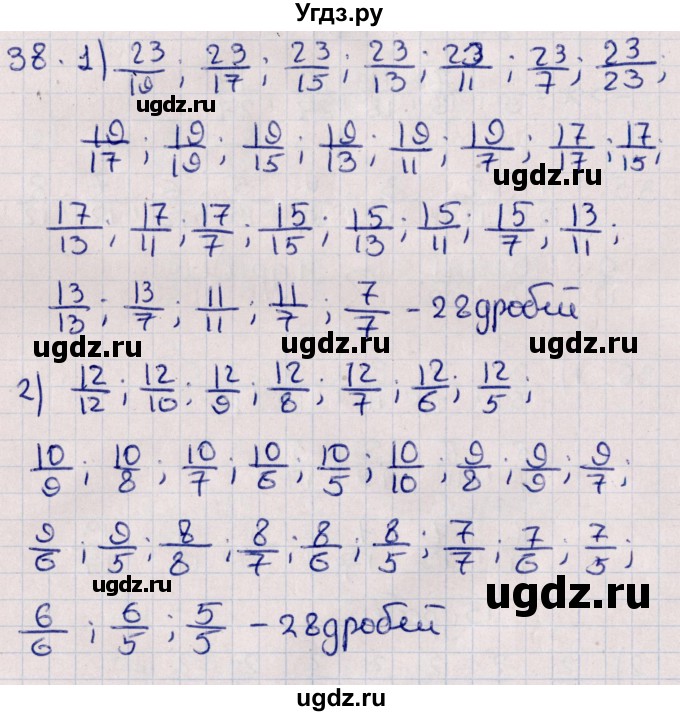 Угдз.ру
38. 1) 23/19; 23/17; 23/15; 23/13; 23/11; 23/7; 23/23;
ugdz.ru
19/17; 19/19; 19/15; 19/13; 19/11; 19/7; 17/17; 17/15;
ugdz.ru
17/13; 17/11; 17/7; 15/15; 15/13; 15/11; 15/7; 13/11;
13/13; 13/7; 11/11; 11/7; 7/7 - 28 дробей
ugdz.ru ugdz.ru
2) 12/12; 12/10; 12/9; 12/8; 12/7; 12/6; 12/5;
10/9; 10/8; 10/7; 10/6; 10/5; 10/10; 9/8; 9/9; 9/7;
9/6; 9/5; 8/8; 8/7; 8/6; 8/5; 7/7; 7/6; 7/5;
ugdz.ru ugdz.ru
6/6; 6/5; 5/5 - 28 дробей
ugdz.ru
ugdz.ru